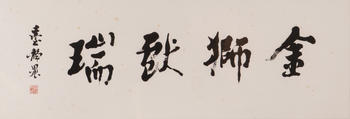 金獅獻瑞
臺靜農